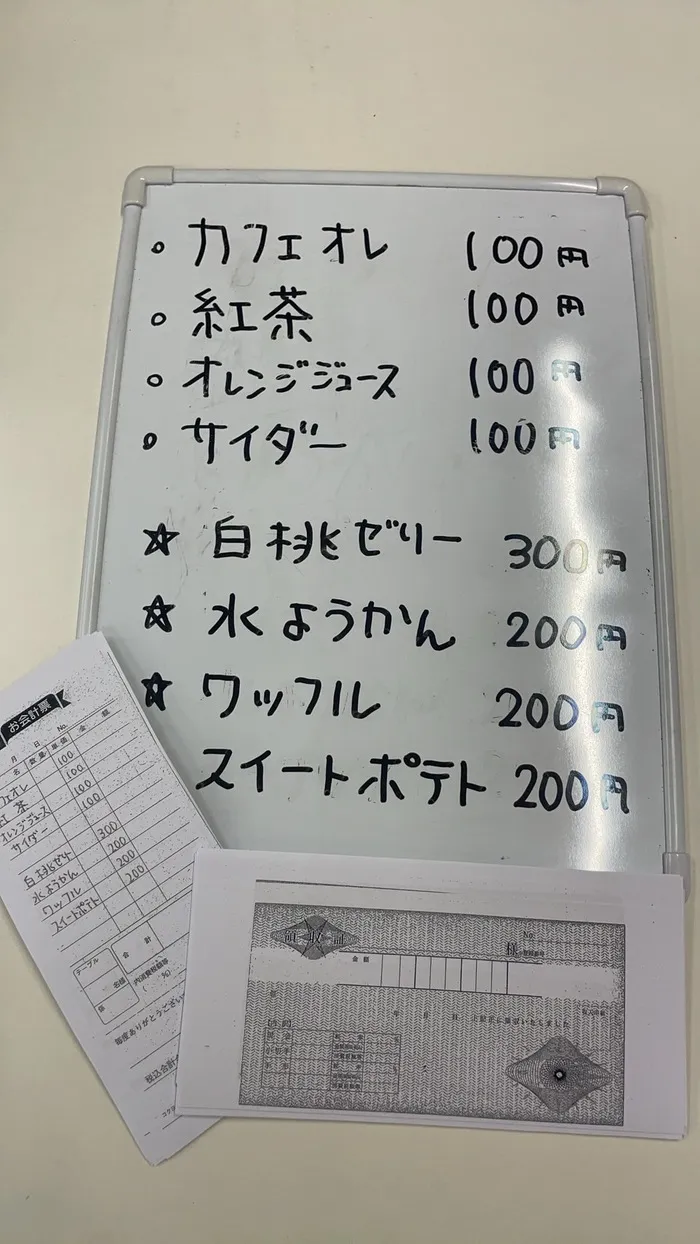 。カフェオレ 100円
。紅茶 100円
。オレンジジュース 100円
。サイダー 100円
☆ 白桃ゼリー 300円
☆ 水ようかん 200円
☆ ワッフル 200円
スイートポテト 200円
お会計票
月 日 No.
名 数量 単価 金額
フェオレ 100
紅茶 100
オレンジジュース 100
サイダー
白桃ゼリー 300
水ようかん 200
ワッフル 200
スイートポテト
テーブル 合計
係 名様 内消費税額等
( %)
毎度ありがとうござい
税込合計
領収証
No.
様 登録番号
金額
年 月 日 上記正に領収いたしました